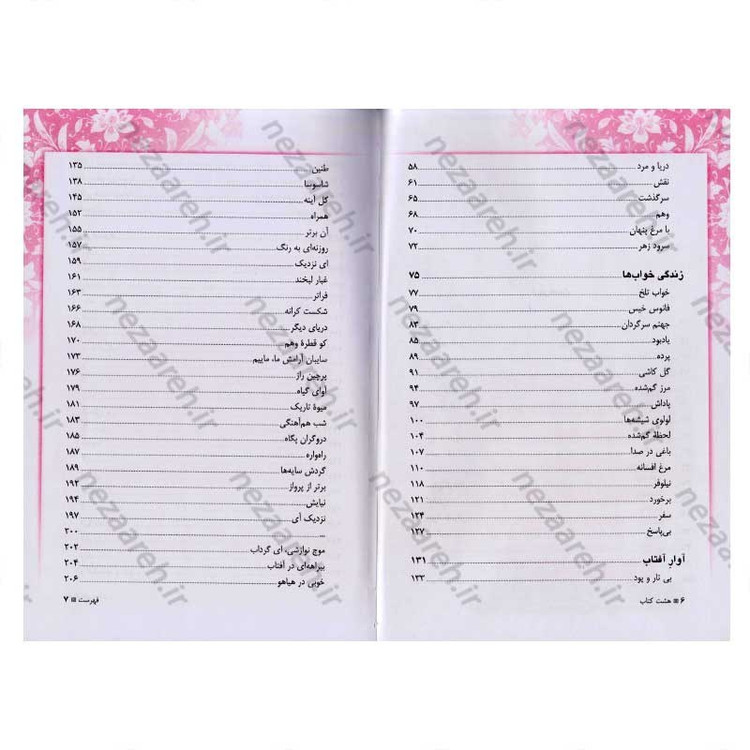 دریا و مرد ۵۸
نقش ۶۱
سرگذشت ۶۵
وهم ۶۸
با مرغ پنهان ۷۰
سرود زهر ۷۲
زندگی خواب‌ها ۷۵
خواب تلخ ۷۷
فانوس خیس ۷۹
جهنم سرگردان ۸۳
یادبود ۸۵
پرده ۸۹
گل کاشی ۹۱
مرز گم‌شده ۹۴
پاداش ۹۷
لولوی شیشه‌ها ۱۰۰
لحظهٔ گم‌شده ۱۰۴
باغی در صدا ۱۰۷
مرغ افسانه ۱۱۰
نیلوفر ۱۱۸
برخورد ۱۲۱
سفر ۱۲۴
بی‌پاسخ ۱۲۷
آوار آفتاب ۱۳۱
بی تار و پود ۱۳۳
۶ هشت کتاب
طنین ۱۳۵
شاسوسا ۱۳۸
گل آینه ۱۴۵
همراه ۱۵۲
آن برتر ۱۵۵
روزنه‌ای به رنگ ۱۵۷
ای نزدیک ۱۵۹
غبار لبخند ۱۶۱
فراتر ۱۶۳
شکست کرانه ۱۶۶
دریای دیگر ۱۶۸
کو قطرهٔ وهم ۱۷۰
سایبان آرامش ما، ماییم ۱۷۳
پرچین راز ۱۷۶
آوای گیاه ۱۷۹
میوهٔ تاریک ۱۸۱
شب هم‌آهنگی ۱۸۳
دروگران پگاه ۱۸۵
راه‌واره ۱۸۷
گردش سایه‌ها ۱۸۹
برتر از پرواز ۱۹۲
نیایش ۱۹۴
نزدیک آی ۱۹۷
... ۲۰۰
موج نوازشی، ای گرداب ۲۰۲
بیراهه‌ای در آفتاب ۲۰۴
خوبی در هیاهو ۲۰۶
فهرست ۷
nezaareh.ir
nezaareh.ir
nezaareh.ir
nezaareh.ir
nezaareh.ir
nezaareh.ir
nezaareh.ir
nezaareh.ir
nezaareh.ir
nezaareh.ir
nezaareh.ir